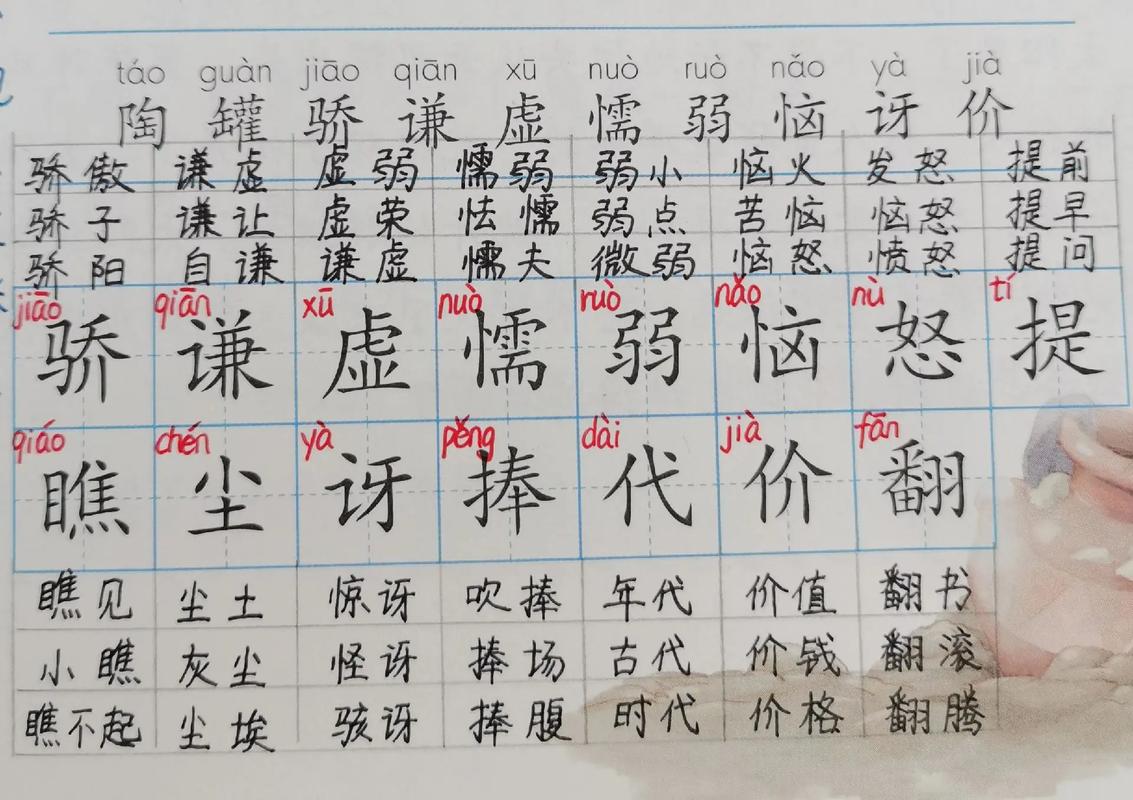 táo guàn jiāo qiān xū nuò ruò nǎo yà jià
陶 罐 骄 谦 虚 懦 弱 恼 讶 价
骄傲 谦虚 虚弱 懦弱 弱小 恼火 发怒 提前
骄子 谦让 虚荣 怯懦 弱点 苦恼 恼怒 提早
骄阳 自谦 谦虚 懦夫 微弱 恼怒 愤怒 提问
jiāo qiān xū nuò ruò nǎo nù tí
骄 谦 虚 懦 弱 恼 怒 提
qiáo chén yà pěng dài jià fān
瞧 尘 讶 捧 代 价 翻
瞧见 尘土 惊讶 吹捧 年代 价值 翻书
小瞧 灰尘 怪讶 捧场 古代 价钱 翻滚
瞧不起 尘埃 骇讶 捧腹 时代 价格 翻腾